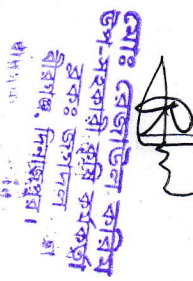 মোঃ রেজাউল করিম
উপ-সহকারী কৃষি কর্মকর্তা
ব্লকঃ
বীরগঞ্জ, দিনাজপুর।